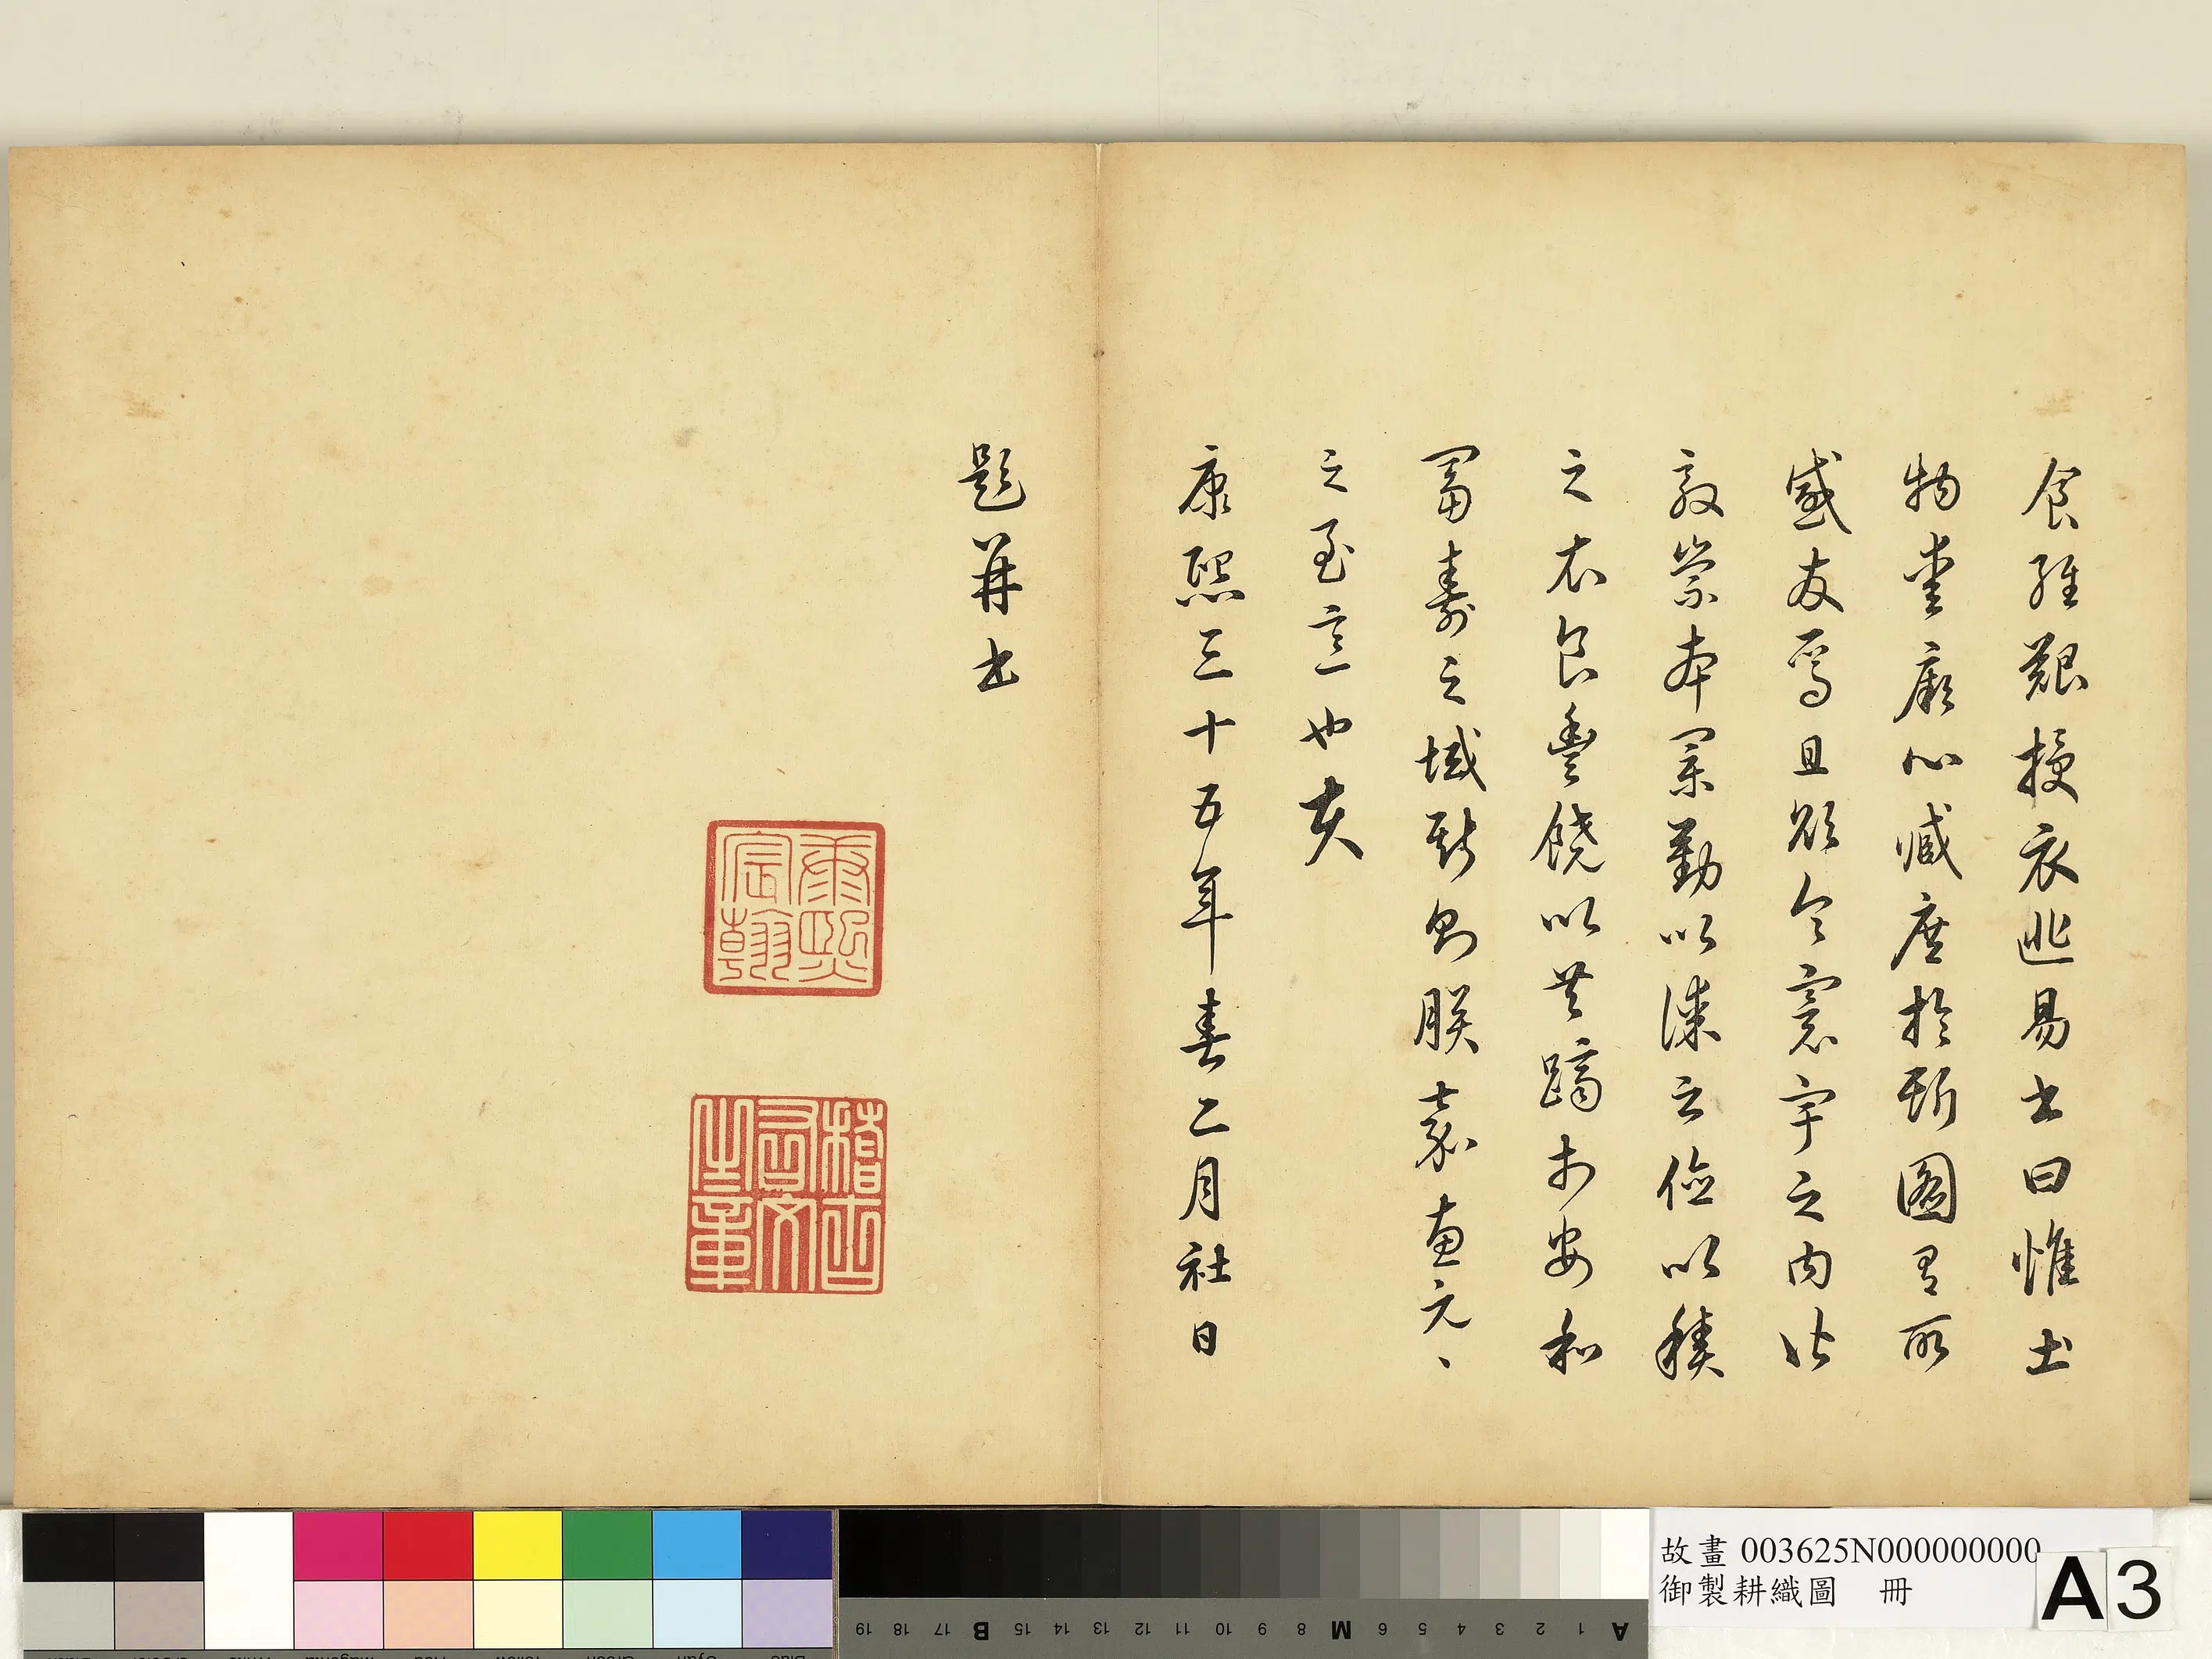 食維艱授衣匪易書曰惟土
物愛厥心臧庶於斯圖有所
感發焉且欲令寰宇之內皆
敦崇本業勤以謀之儉以積
之衣食豐饒以共躋於安和
富壽之域斯則朕嘉惠元〻
之至意也夫
康熙三十五年春二月社日
題并書
康熙宸翰
稽古右文之章
故畫 003625N000000000
御製耕織圖 冊
A3
A 1 2 3 4 5 6 M 8 9 10 11 12 13 14 15 B 17 18 19